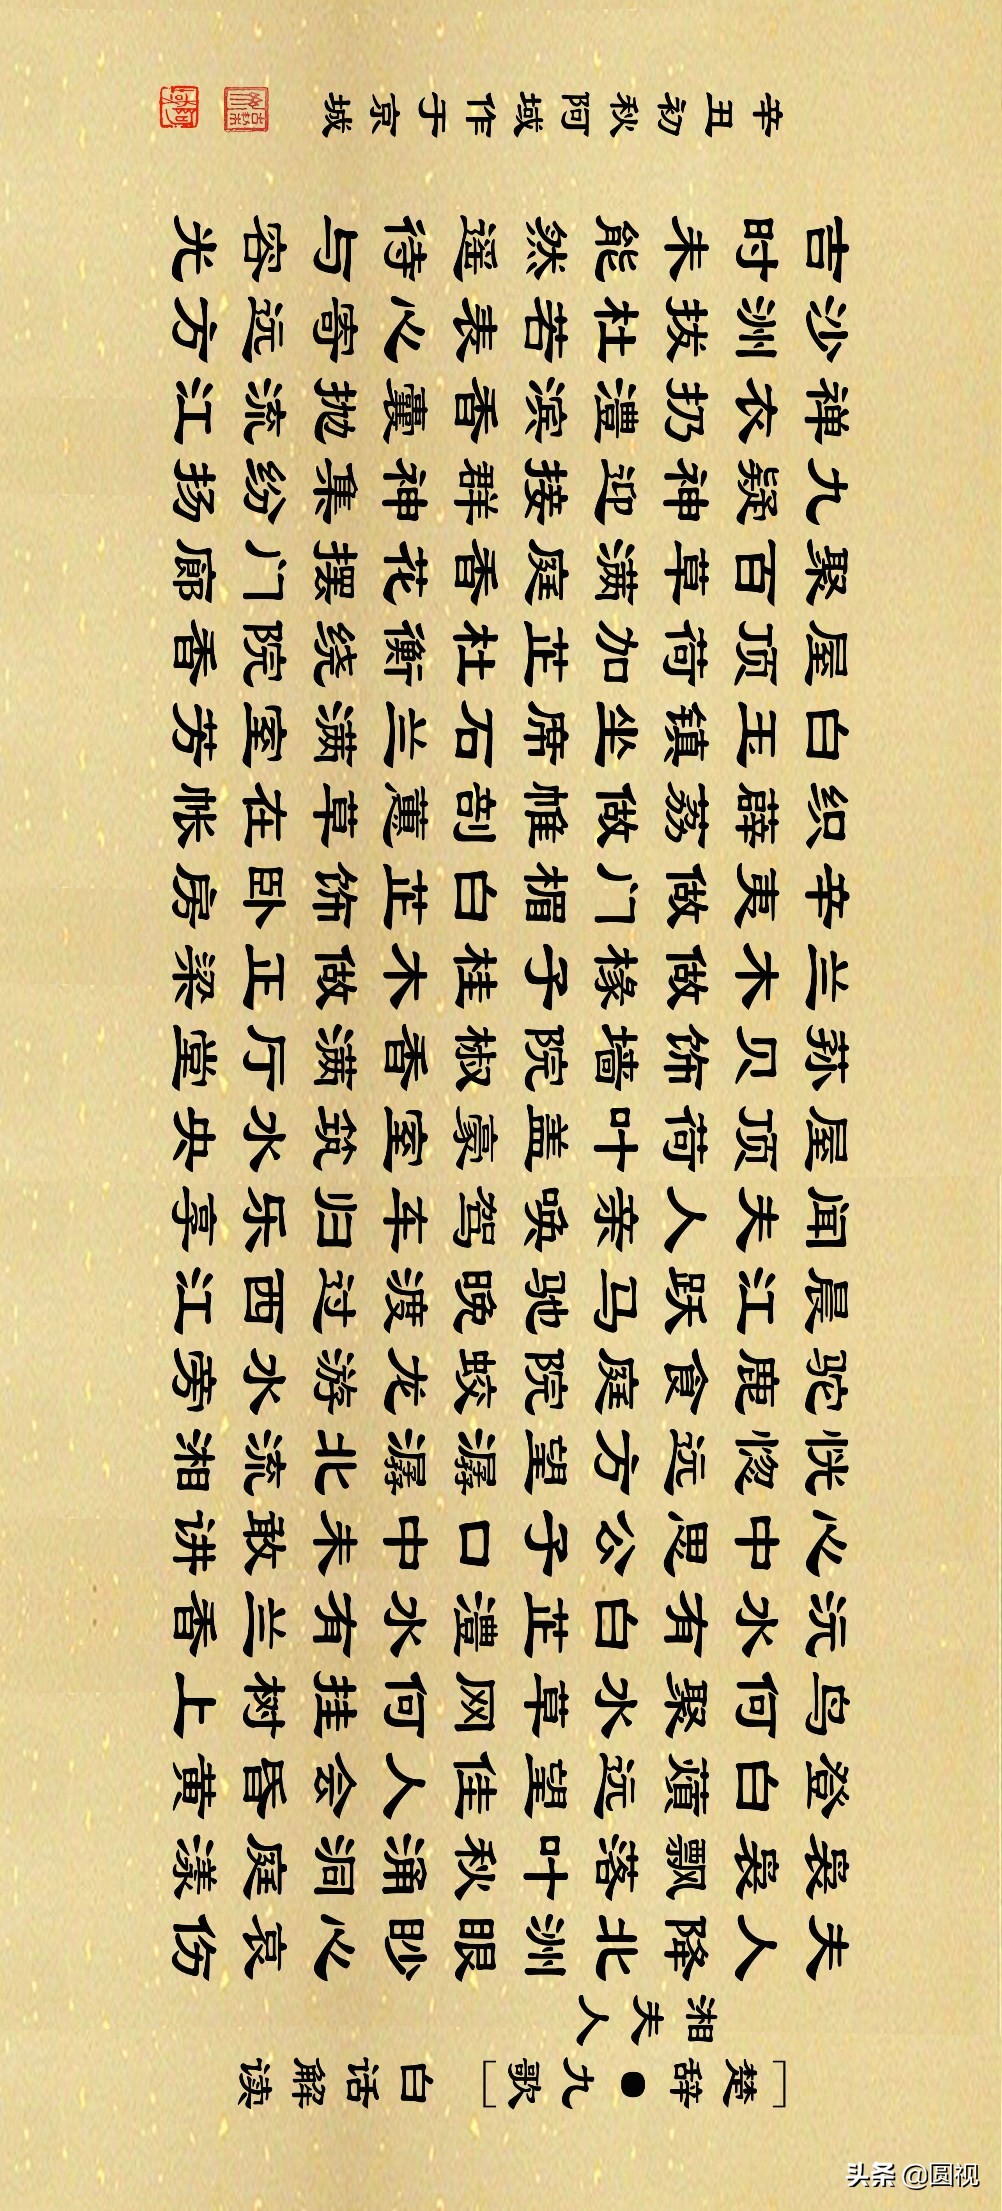 [楚辞●九歌] 白话解读
湘夫人
夫人降北洲眼眇心哀伤
袅袅飘落叶秋涌洞庭漾
登白薠远望佳人会昏黄
鸟何聚水草网何挂树上
沅水有白芷澧水有兰香
心中思公子口中未敢讲
恍惚远方望潺潺北流湘
驼鹿食庭院蛟龙游水旁
晨江跃马驰晚渡过西江
闻夫人亲唤驾车归乐享
屋顶荷叶盖豪室筑水央
荪贝饰墙院椒香满厅堂
兰木做椽子桂木做正梁
辛夷做门楣白芷饰卧房
织薜荔做帷剖蕙草在帐
白玉镇坐席石兰满室芳
屋顶荷加芷杜衡绕院香
聚百草满庭香花摆门廊
九疑神迎接群神集纷扬
禅衣扔澧滨香囊抛流江
沙洲拔杜若表心寄远方
吉时未能然遥待与容光
辛丑初秋阿域作于京城
头条 @圆视